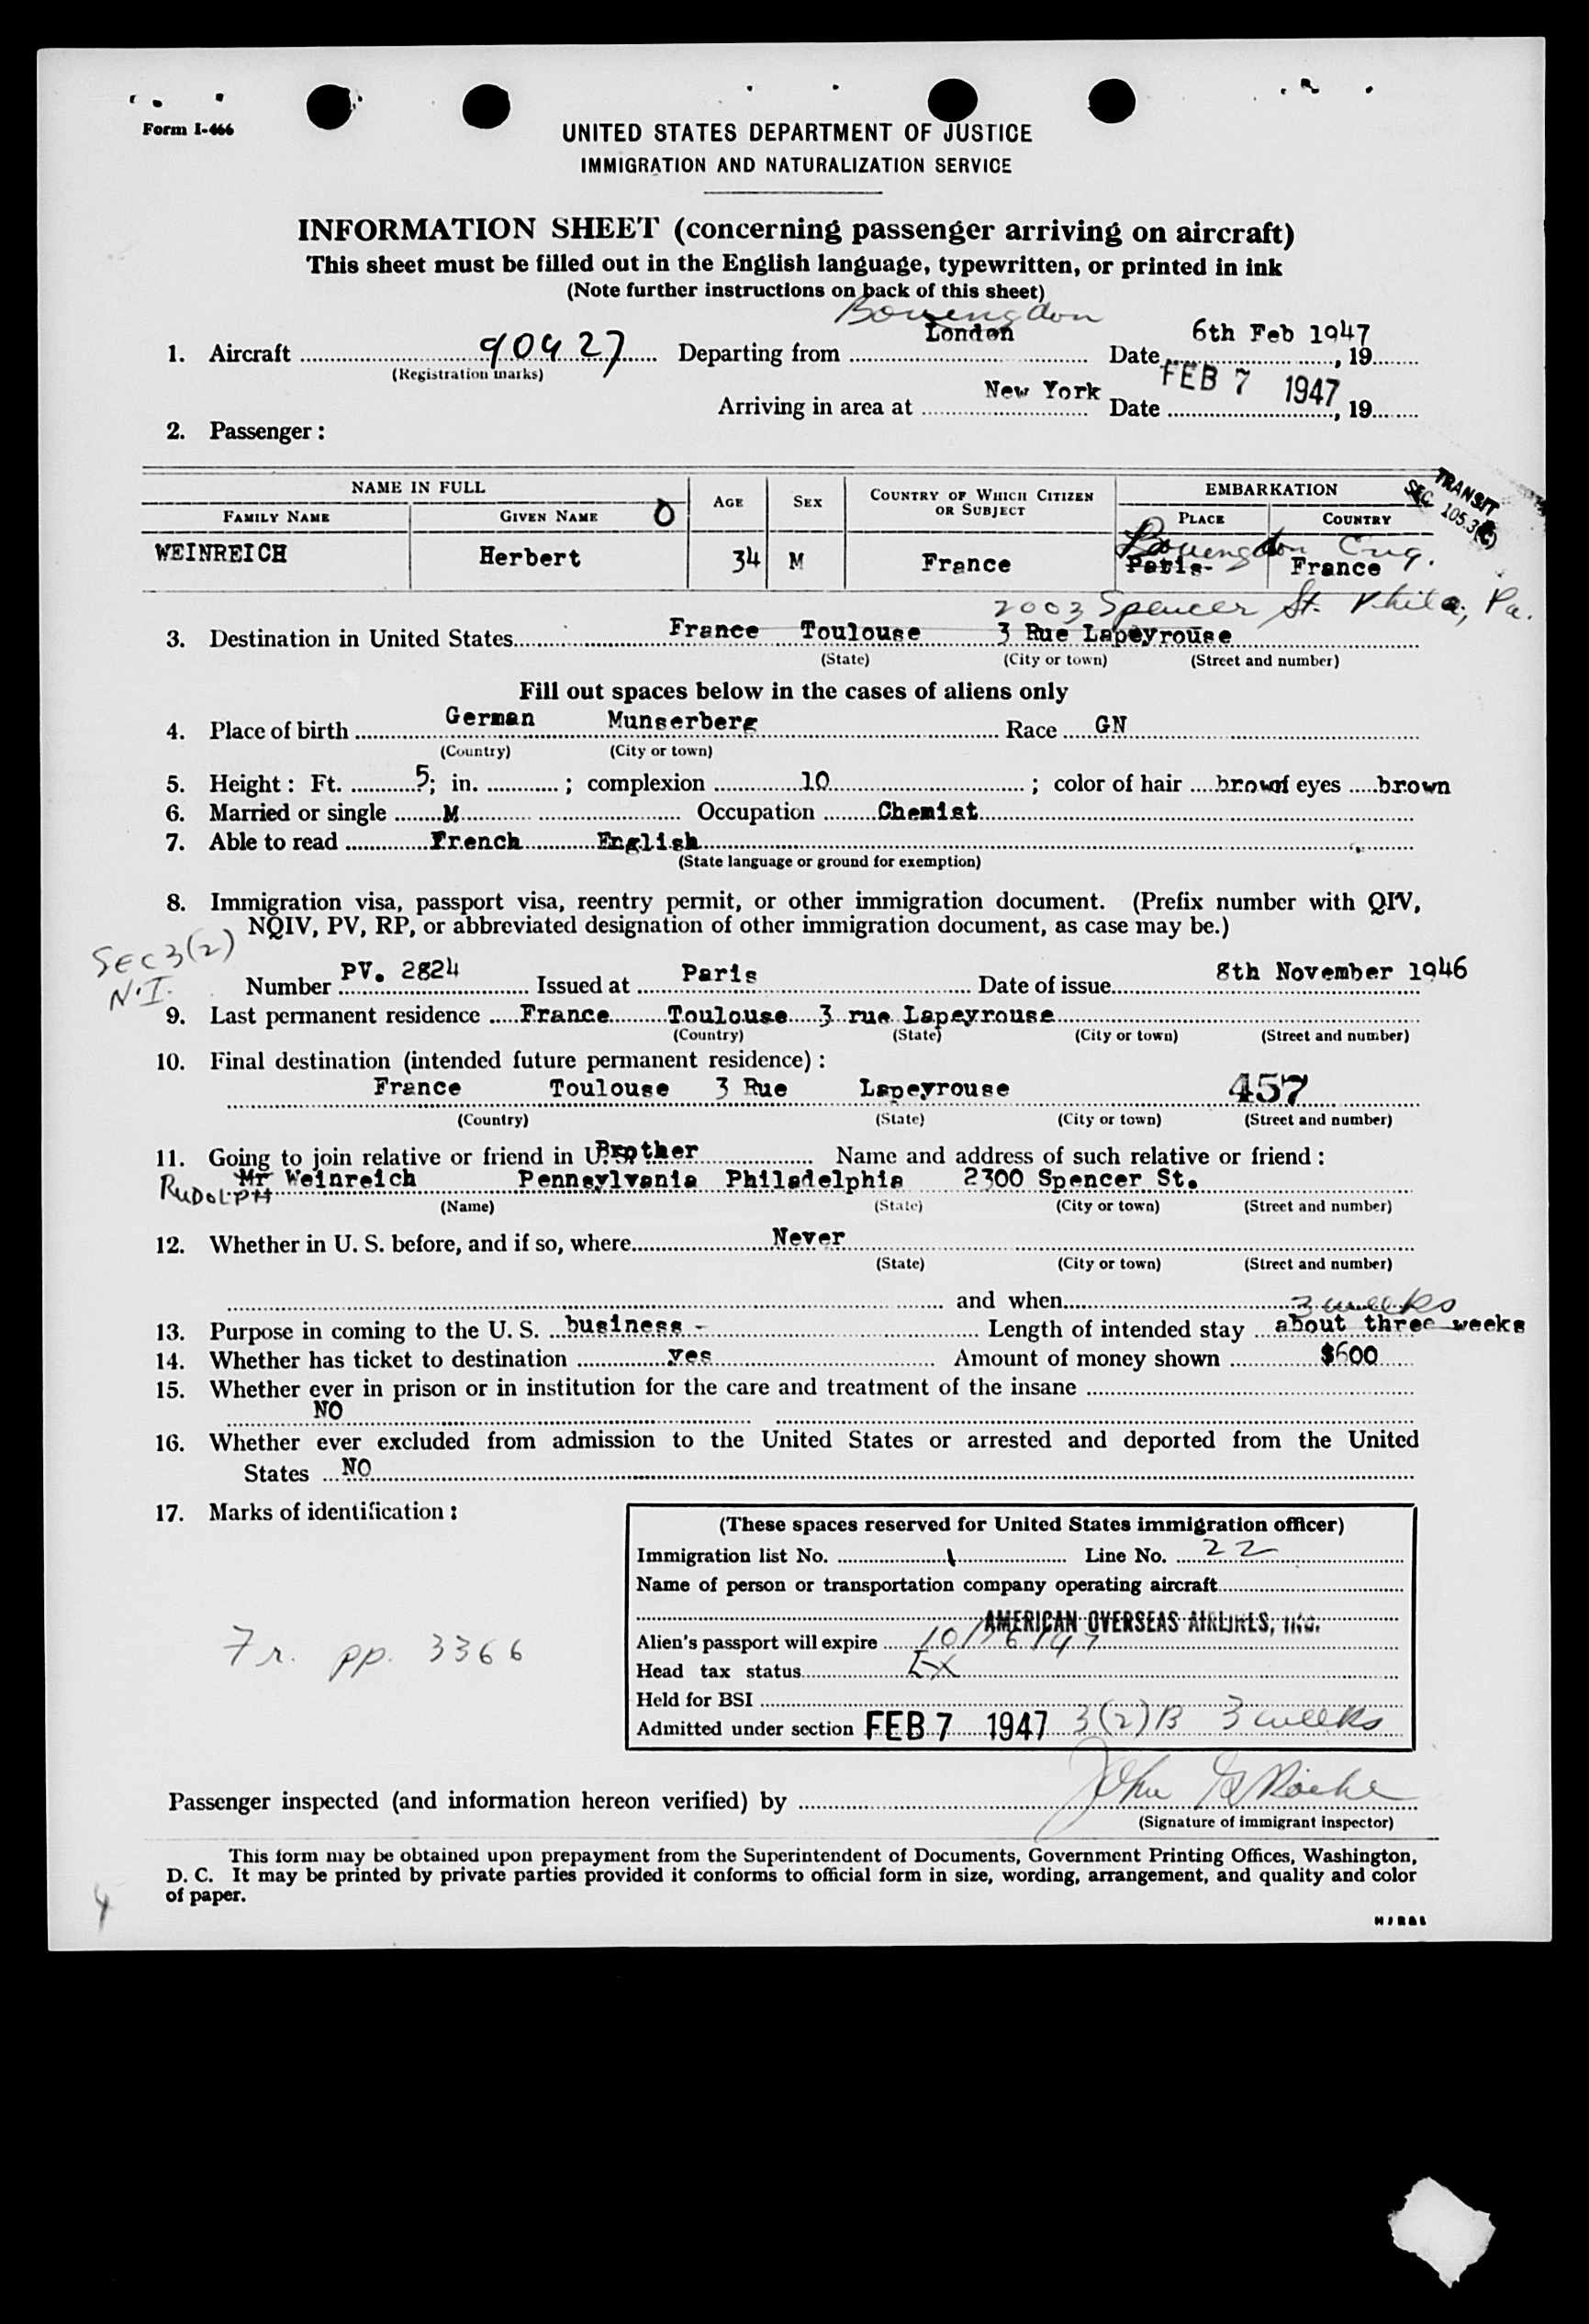 Form I-466
UNITED STATES DEPARTMENT OF JUSTICE
IMMIGRATION AND NATURALIZATION SERVICE
INFORMATION SHEET (concerning passenger arriving on aircraft)
This sheet must be filled out in the English language, typewritten, or printed in ink
(Note further instructions on back of this sheet)
Bovengdon
1. Aircraft 90427 Departing from London Date 6th Feb 1947, 19
(Registration marks)
Arriving in area at New York Date FEB 7 1947, 19
2. Passenger:
NAME IN FULL AGE SEX COUNTRY OF WHICH CITIZEN OR SUBJECT EMBARKATION
TRANSIT SEC. 105.3(C)
FAMILY NAME GIVEN NAME PLACE COUNTRY
Bovengdon Eng.
WEINREICH Herbert 34 M France Paris- France
2003 Spencer St. Phila, Pa.
3. Destination in United States France Toulouse 3 Rue Lapeyrouse
(State) (City or town) (Street and number)
Fill out spaces below in the cases of aliens only
4. Place of birth German Munserberg Race GN
(Country) (City or town)
5. Height: Ft. 5; in. ; complexion 10 ; color of hair brown of eyes brown
6. Married or single M Occupation Chemist
7. Able to read French English
(State language or ground for exemption)
8. Immigration visa, passport visa, reentry permit, or other immigration document. (Prefix number with QIV,
NQIV, PV, RP, or abbreviated designation of other immigration document, as case may be.)
Sec 3(2)
N.I.
Number PV. 2824 Issued at Paris Date of issue 8th November 1946
9. Last permanent residence France Toulouse 3 rue Lapeyrouse
(Country) (State) (City or town) (Street and number)
10. Final destination (intended future permanent residence):
France Toulouse 3 Rue Lapeyrouse 457
(Country) (State) (City or town) (Street and number)
11. Going to join relative or friend in U. S. Brother Name and address of such relative or friend:
RUDOLPH Mr Weinreich Pennsylvania Philadelphia 2300 Spencer St.
(Name) (State) (City or town) (Street and number)
12. Whether in U. S. before, and if so, where Never
(State) (City or town) (Street and number)
and when
3 weeks
13. Purpose in coming to the U. S. business - Length of intended stay about three weeks
14. Whether has ticket to destination yes Amount of money shown $600
15. Whether ever in prison or in institution for the care and treatment of the insane
NO
16. Whether ever excluded from admission to the United States or arrested and deported from the United
States NO
17. Marks of identification:
(These spaces reserved for United States immigration officer)
Immigration list No. 1 Line No. 22
Name of person or transportation company operating aircraft
AMERICAN OVERSEAS AIRLINES, INC.
Fr. pp. 3366
Alien's passport will expire 10/26/47
Head tax status Ex
Held for BSI
Admitted under section FEB 7 1947 3(2)B 3 weeks
Passenger inspected (and information hereon verified) by John
(Signature of immigrant inspector)
This form may be obtained upon prepayment from the Superintendent of Documents, Government Printing Offices, Washington,
D. C. It may be printed by private parties provided it conforms to official form in size, wording, arrangement, and quality and color
of paper.
4